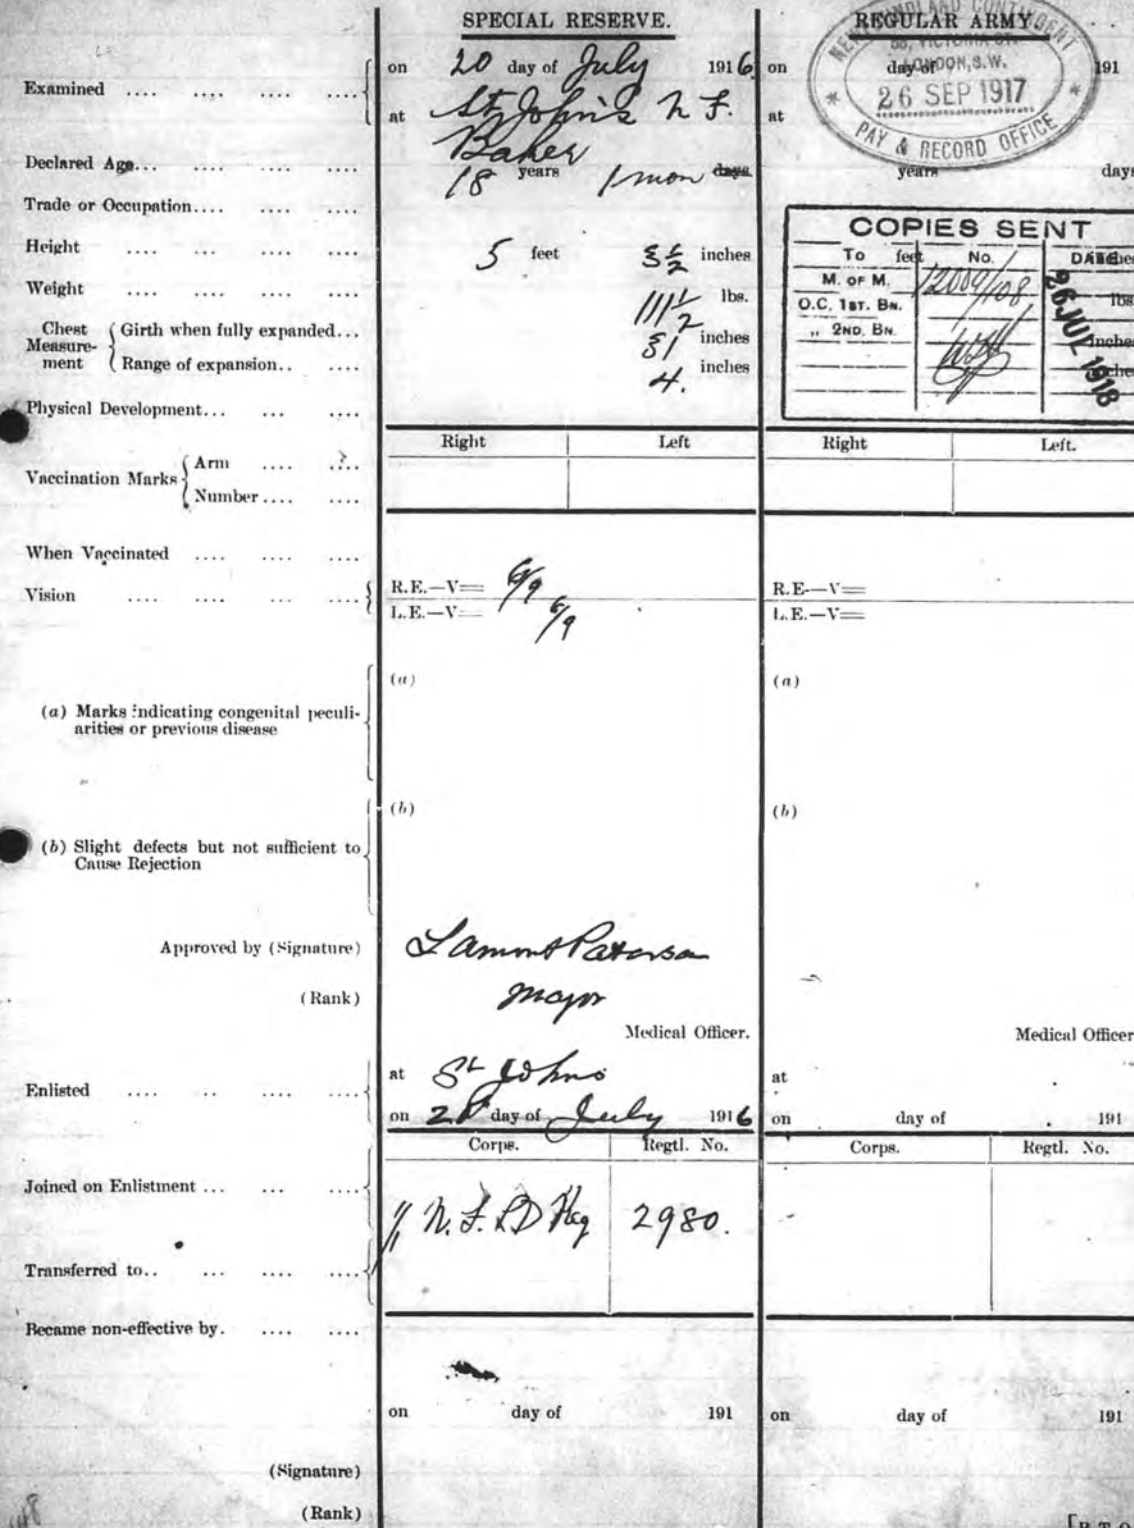 SPECIAL RESERVE. REGULAR ARMY
NEWFOUNDLAND CONTINGENT
58, VICTORIA ST.
LONDON, S.W.
26 SEP 1917
PAY & RECORD OFFICE
Examined .... .... .... .... on 20 day of July 1916 on day of 191
at St. John's N F. at
Baker
Declared Age... .... .... .... 18 years 1 mon days years days
Trade or Occupation.... .... ....
Height .... .... .... .... 5 feet 3½ inches feet
Weight .... .... .... .... 111½ lbs. lbs
Chest Measure-ment { Girth when fully expanded... 31 inches inches
Range of expansion.. .... 4. inches inches
COPIES SENT
To No. DATE
M. OF M. 12009/108 26 JUL 1918
O.C. 1ST. BN.
„ 2ND. BN.
Physical Development... ... ....
Right Left Right Left.
Vaccination Marks { Arm .... ....
Number .... ....
When Vaccinated .... .... ....
Vision .... .... ... .... R.E.—V= 6/9 R.E.—V=
L.E.—V= 6/9 L.E.—V=
(a) (a)
(a) Marks indicating congenital peculi-
arities or previous disease
(b) (b)
(b) Slight defects but not sufficient to
Cause Rejection
Approved by (Signature) Lamont Paterson
(Rank) Major
Medical Officer. Medical Officer
at St Johns at
Enlisted .... .. .... ....
on day of July 1916 on day of 191
Corps. Regtl. No. Corps. Regtl. No.
Joined on Enlistment ... ... .... N.F.LD Reg 2980.
Transferred to.. ... .... ....
Became non-effective by. .... ....
on day of 191 on day of 191
(Signature)
(Rank)